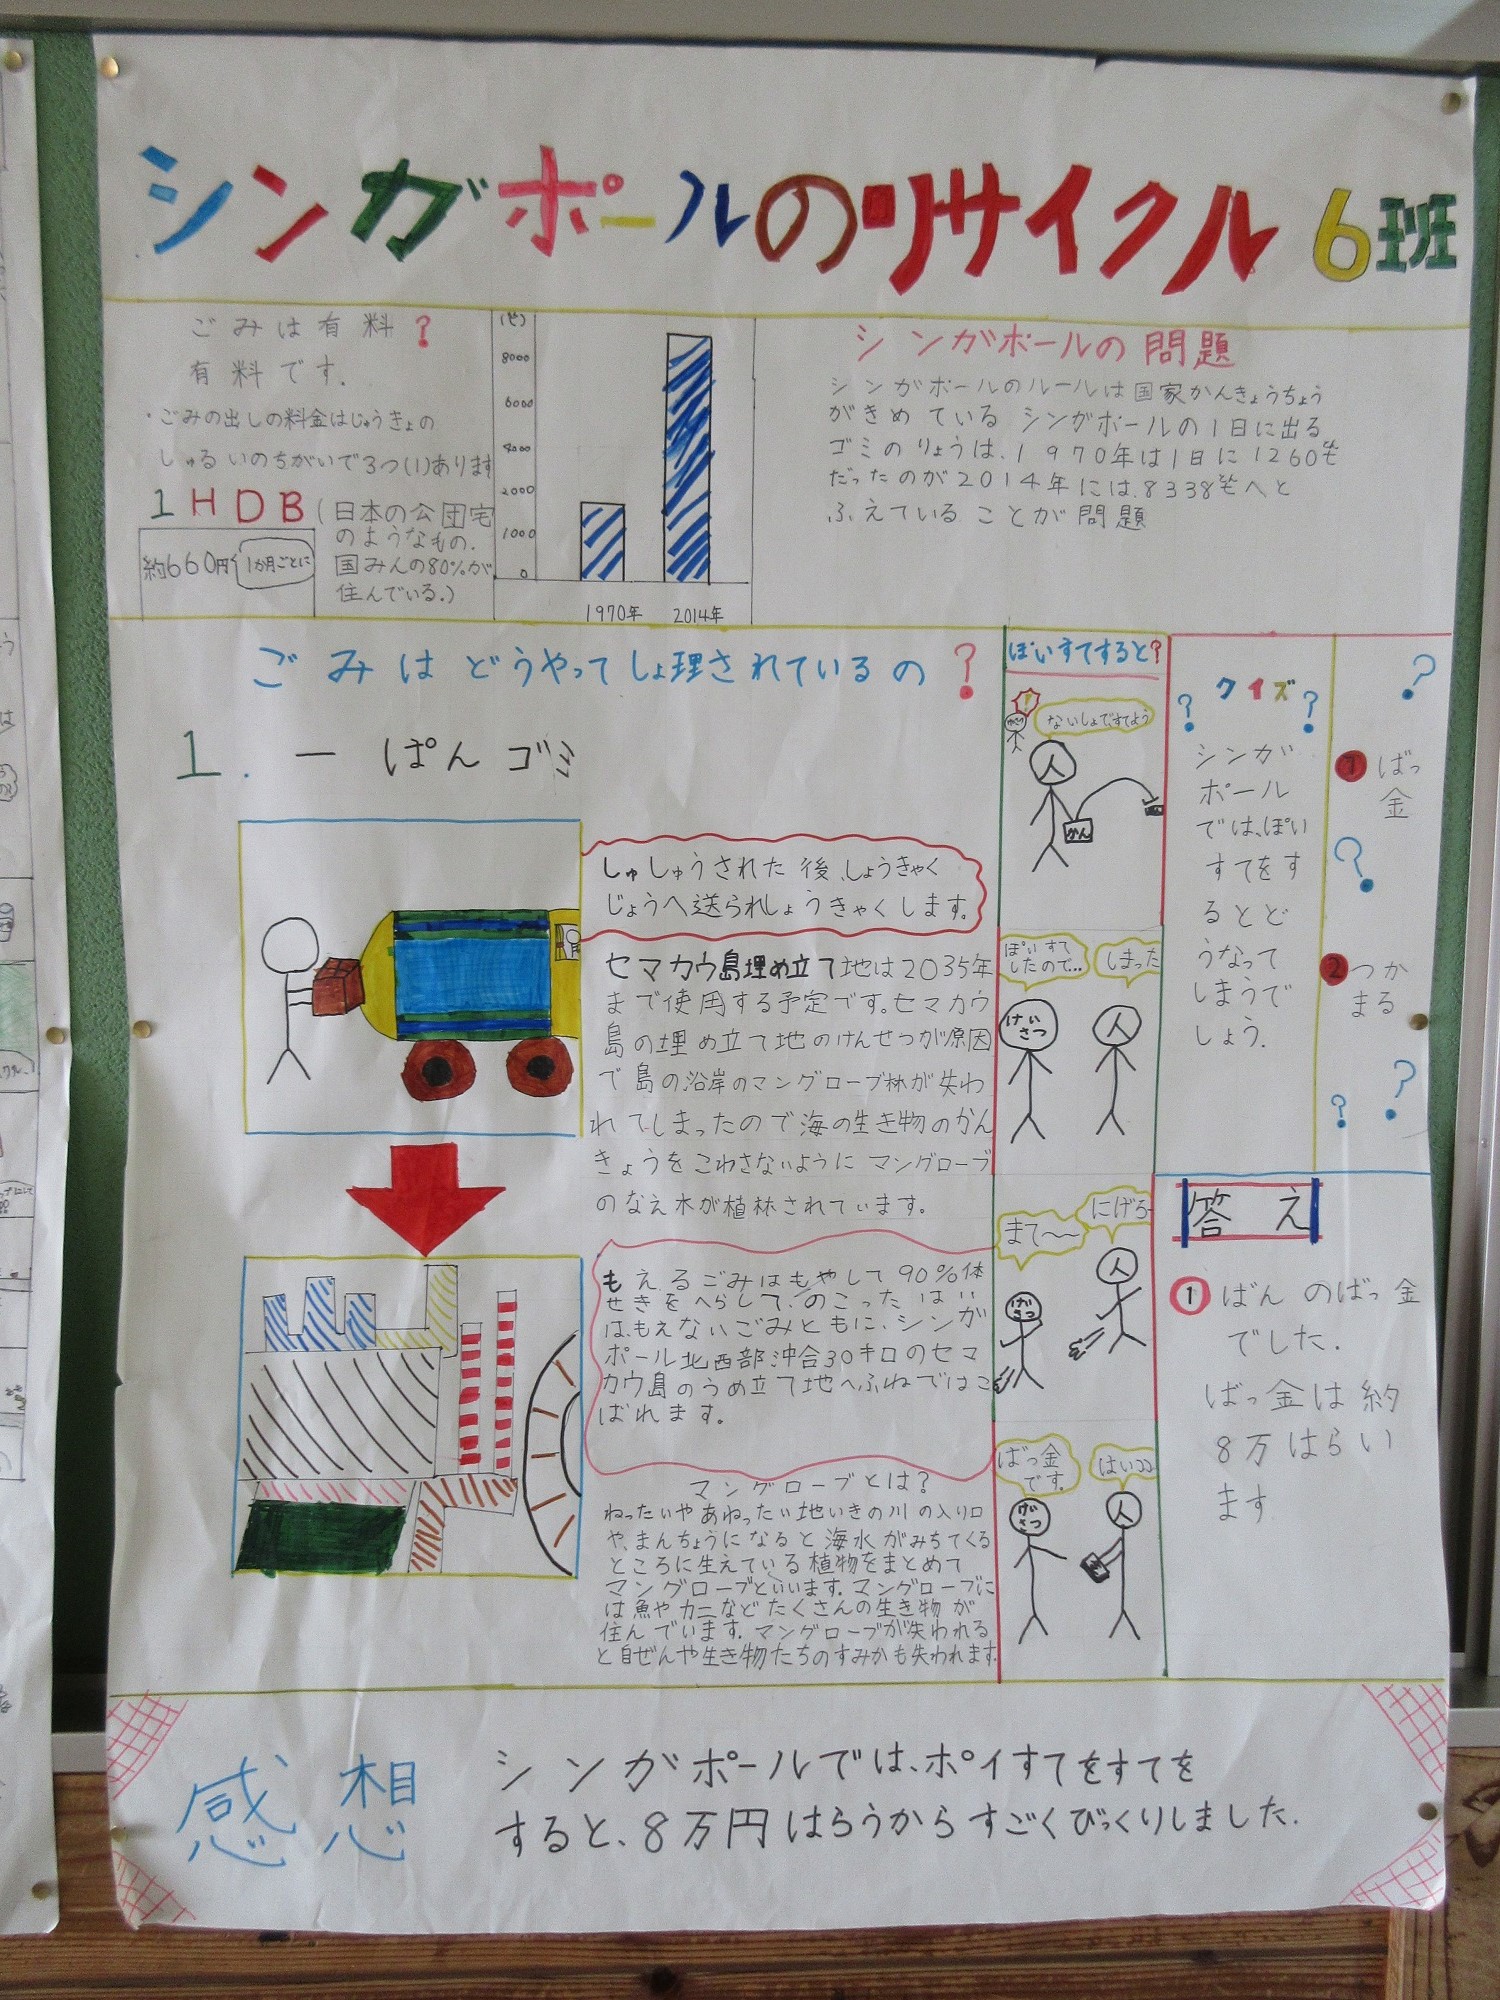 シンガポールのリサイクル 6班
ごみは有料?
有料です.
・ごみの出しの料金はじゅうきょの
しゅるいのちがいで3つ(1)あります
1 HDB(日本の公団宅
のようなもの.
国みんの80%が
住んでいる.)
約660円
1か月ごとに
8000
6000
4000
2000
1000
0
1970年
2014年
シンガポールの問題
シンガポールのルールは国家かんきょうちょう
がきめている シンガポールの1日に出る
ゴミのりょうは、1970年は1日に1260㌧
だったのが2014年には、8338㌧へと
ふえていることが問題
ごみはどうやってしょ理されているの?
1. 一ぱんゴミ
しゅしゅうされた後、しょうきゃく
じょうへ送られしょうきゃくします。
セマカウ島埋め立て地は2035年
まで使用する予定です。セマカウ
島の埋め立て地のけんせつが原因
で島の沿岸のマングローブ林が失わ
れてしまったので海の生き物のかん
きょうをこわさないようにマングローブ
のなえ木が植林されています。
もえるごみはもやして90%体
せきをへらして、のこったはい
は、もえないごみともに、シンガ
ポール北西部沖合30キロのセマ
カウ島のうめ立て地へふねではこ
ばれます。
マングローブとは?
ねったいやあねったい地いきの川の入り口
や、まんちょうになると海水がみちてくる
ところに生えている植物をまとめて
マングローブといいます。マングローブに
は魚やカニなどたくさんの生き物が
住んでいます。マングローブが失われる
と自ぜんや生き物たちのすみかも失われます。
ぽいすてすると?
!
ないしょですてよう
人
かん
ぽいすて
したので…
しまった
けい
さつ
人
まて〜〜
にげろー
けい
さつ
人
ばっ金
です。
はいココ
けい
さつ
人
クイズ
? ?
シンガ
ポール
では、ぽい
すてをす
るとど
うなって
しまうで
しょう.
?
1 ばっ
金
?
2 つか
まる
?
?
答え
1 ばんのばっ金
でした.
ばっ金は約
8万はらい
ます
感想
シンガポールでは、ポイすてをすてを
すると、8万円はらうからすごくびっくりしました.